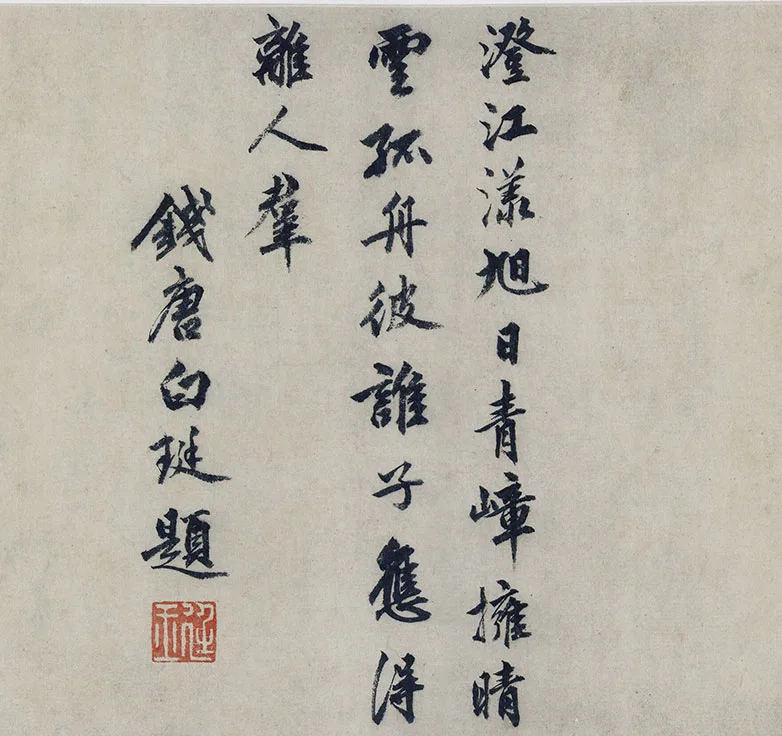 澄江漾旭日青嶂擁晴
雲孤舟彼誰子應得
離人羣
錢唐白珽題